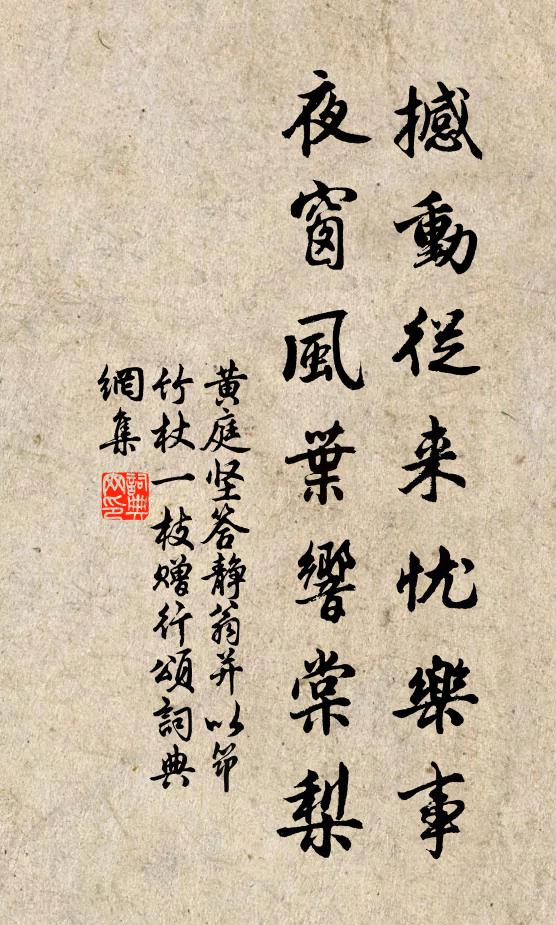 撼動從来忧樂事
夜窗風葉響棠梨
黄庭坚答静翁并以筇
竹杖一枝赠行頌詞典
網集
詞典
网印